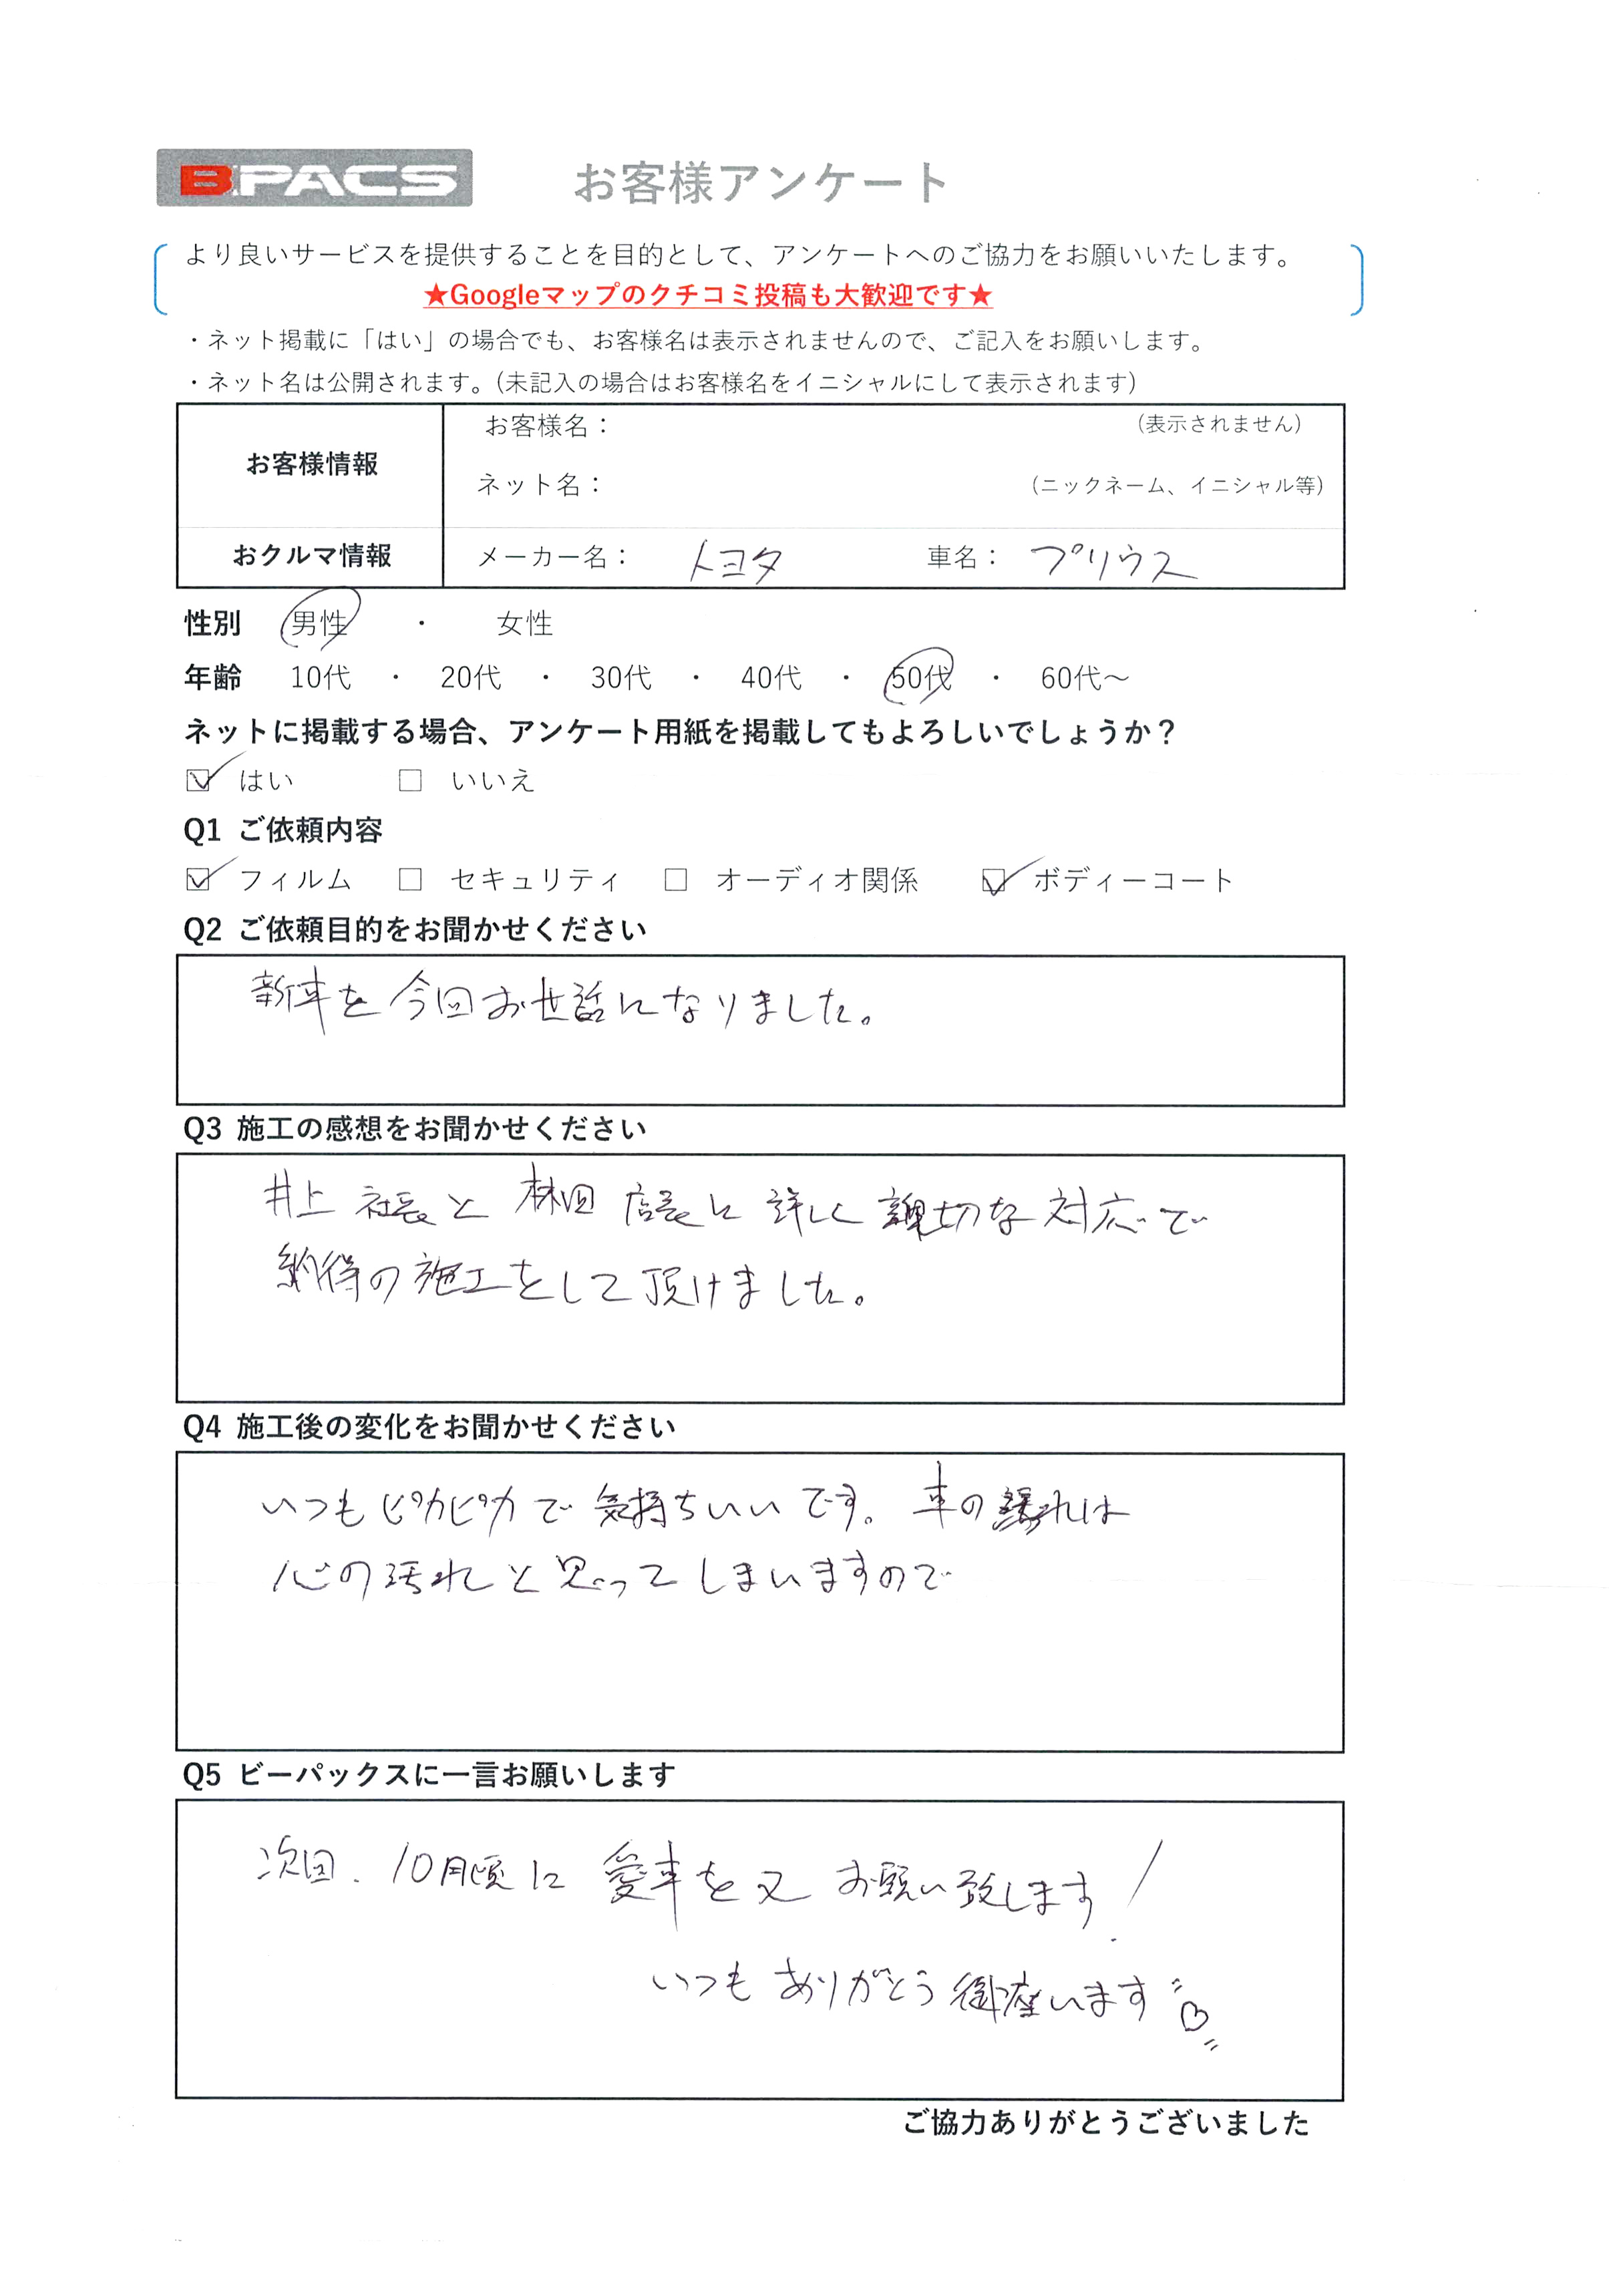 B.PACS お客様アンケート
より良いサービスを提供することを目的として、アンケートへのご協力をお願いいたします。
★Googleマップのクチコミ投稿も大歓迎です★
・ネット掲載に「はい」の場合でも、お客様名は表示されませんので、ご記入をお願いします。
・ネット名は公開されます。(未記入の場合はお客様名をイニシャルにして表示されます)
お客様情報
お客様名： (表示されません)
ネット名： (ニックネーム、イニシャル等)
おクルマ情報 メーカー名： トヨタ 車名： プリウス
性別 男性 ・ 女性
年齢 10代 ・ 20代 ・ 30代 ・ 40代 ・ 50代 ・ 60代～
ネットに掲載する場合、アンケート用紙を掲載してもよろしいでしょうか？
☑ はい □ いいえ
Q1 ご依頼内容
☑ フィルム □ セキュリティ □ オーディオ関係 ☑ ボディーコート
Q2 ご依頼目的をお聞かせください
新車を今回お世話になりました。
Q3 施工の感想をお聞かせください
井上 社長と 林田 店長に 詳しく 親切な 対応で
納得の施工をして頂けました。
Q4 施工後の変化をお聞かせください
いつもピカピカで気持ちいいです。車の れは
心の汚れと思ってしまいますので
Q5 ビーパックスに一言お願いします
次回、10月頃に愛車を又お願い致します！
いつもありがとう御座います♡
ご協力ありがとうございました